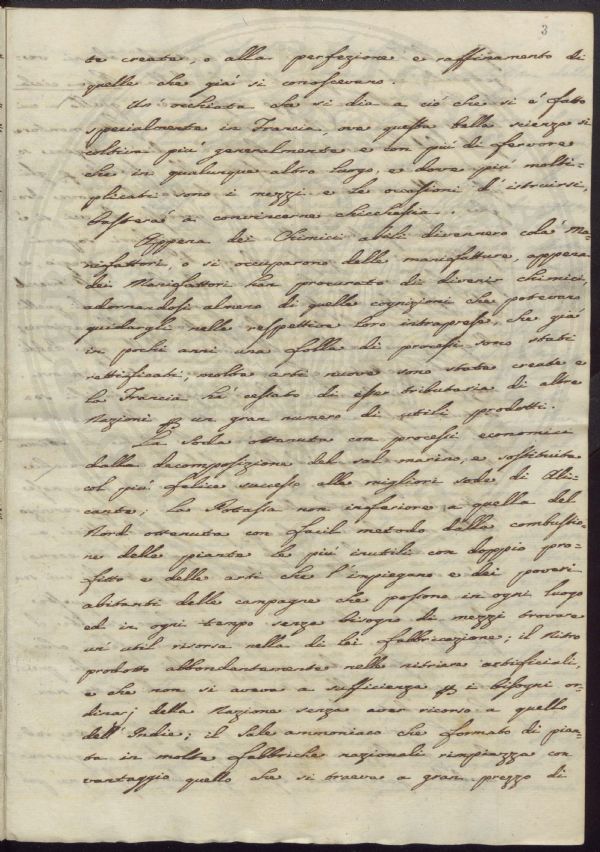 3
te create, o alla perfezione e raffinamento di
quelle che già si conoscevano.
Un occhiata che si dia a ciò che si è fatto
specialmente in Francia, ove questa bella scienza si
coltiva più generalmente e con più di fervore
che in qualunque altro luogo, e dove più molti-
plicati sono i mezzi e le occasioni d'istruirsi,
basterà a convincerne chicchesia.
Appena dei Chimici abili divennero colà Ma-
nifattori, o si occuparono delle manifatture, appena
dei Manifattori han procurato di divenir chimici,
adornandosi almeno di quelle cognizioni che potevano
guidargli nelle respettive loro intraprese, che già
in pochi anni una folla di processi sono stati
rettificati, molte arti nuove sono state create e
la Francia hà cessato di esser tributaria di altre
Nazioni p un gran numero di utili prodotti.
La Soda ottenuta con processi economici
dalla decomposizione del sal marino, e sostituita
col più felice successo alle migliori sode di Ali-
cante; la Potassa non inferiore a quella del
Nord ottenuta con facil metodo dalla combustio-
ne delle piante le più inutili con doppio pro-
fitto e delle arti che l'impiegano e dei poveri
abitanti delle campagne che possono in ogni luogo
ed in ogni tempo senza bisogno di mezzi trovare
un util risorsa nella di lei fabbricazione; il Nitro
prodotto abbondantemente nelle nitriere artificiali,
e che non si aveva a sufficienza p i bisogni or-
dinarj della Nazione senza aver ricorso a quello
dell'Indie; il Sale ammoniaco che formato di pian-
ta in molte fabbriche nazionali rimpiazza con
vantaggio quello che si traeva a gran prezzo di